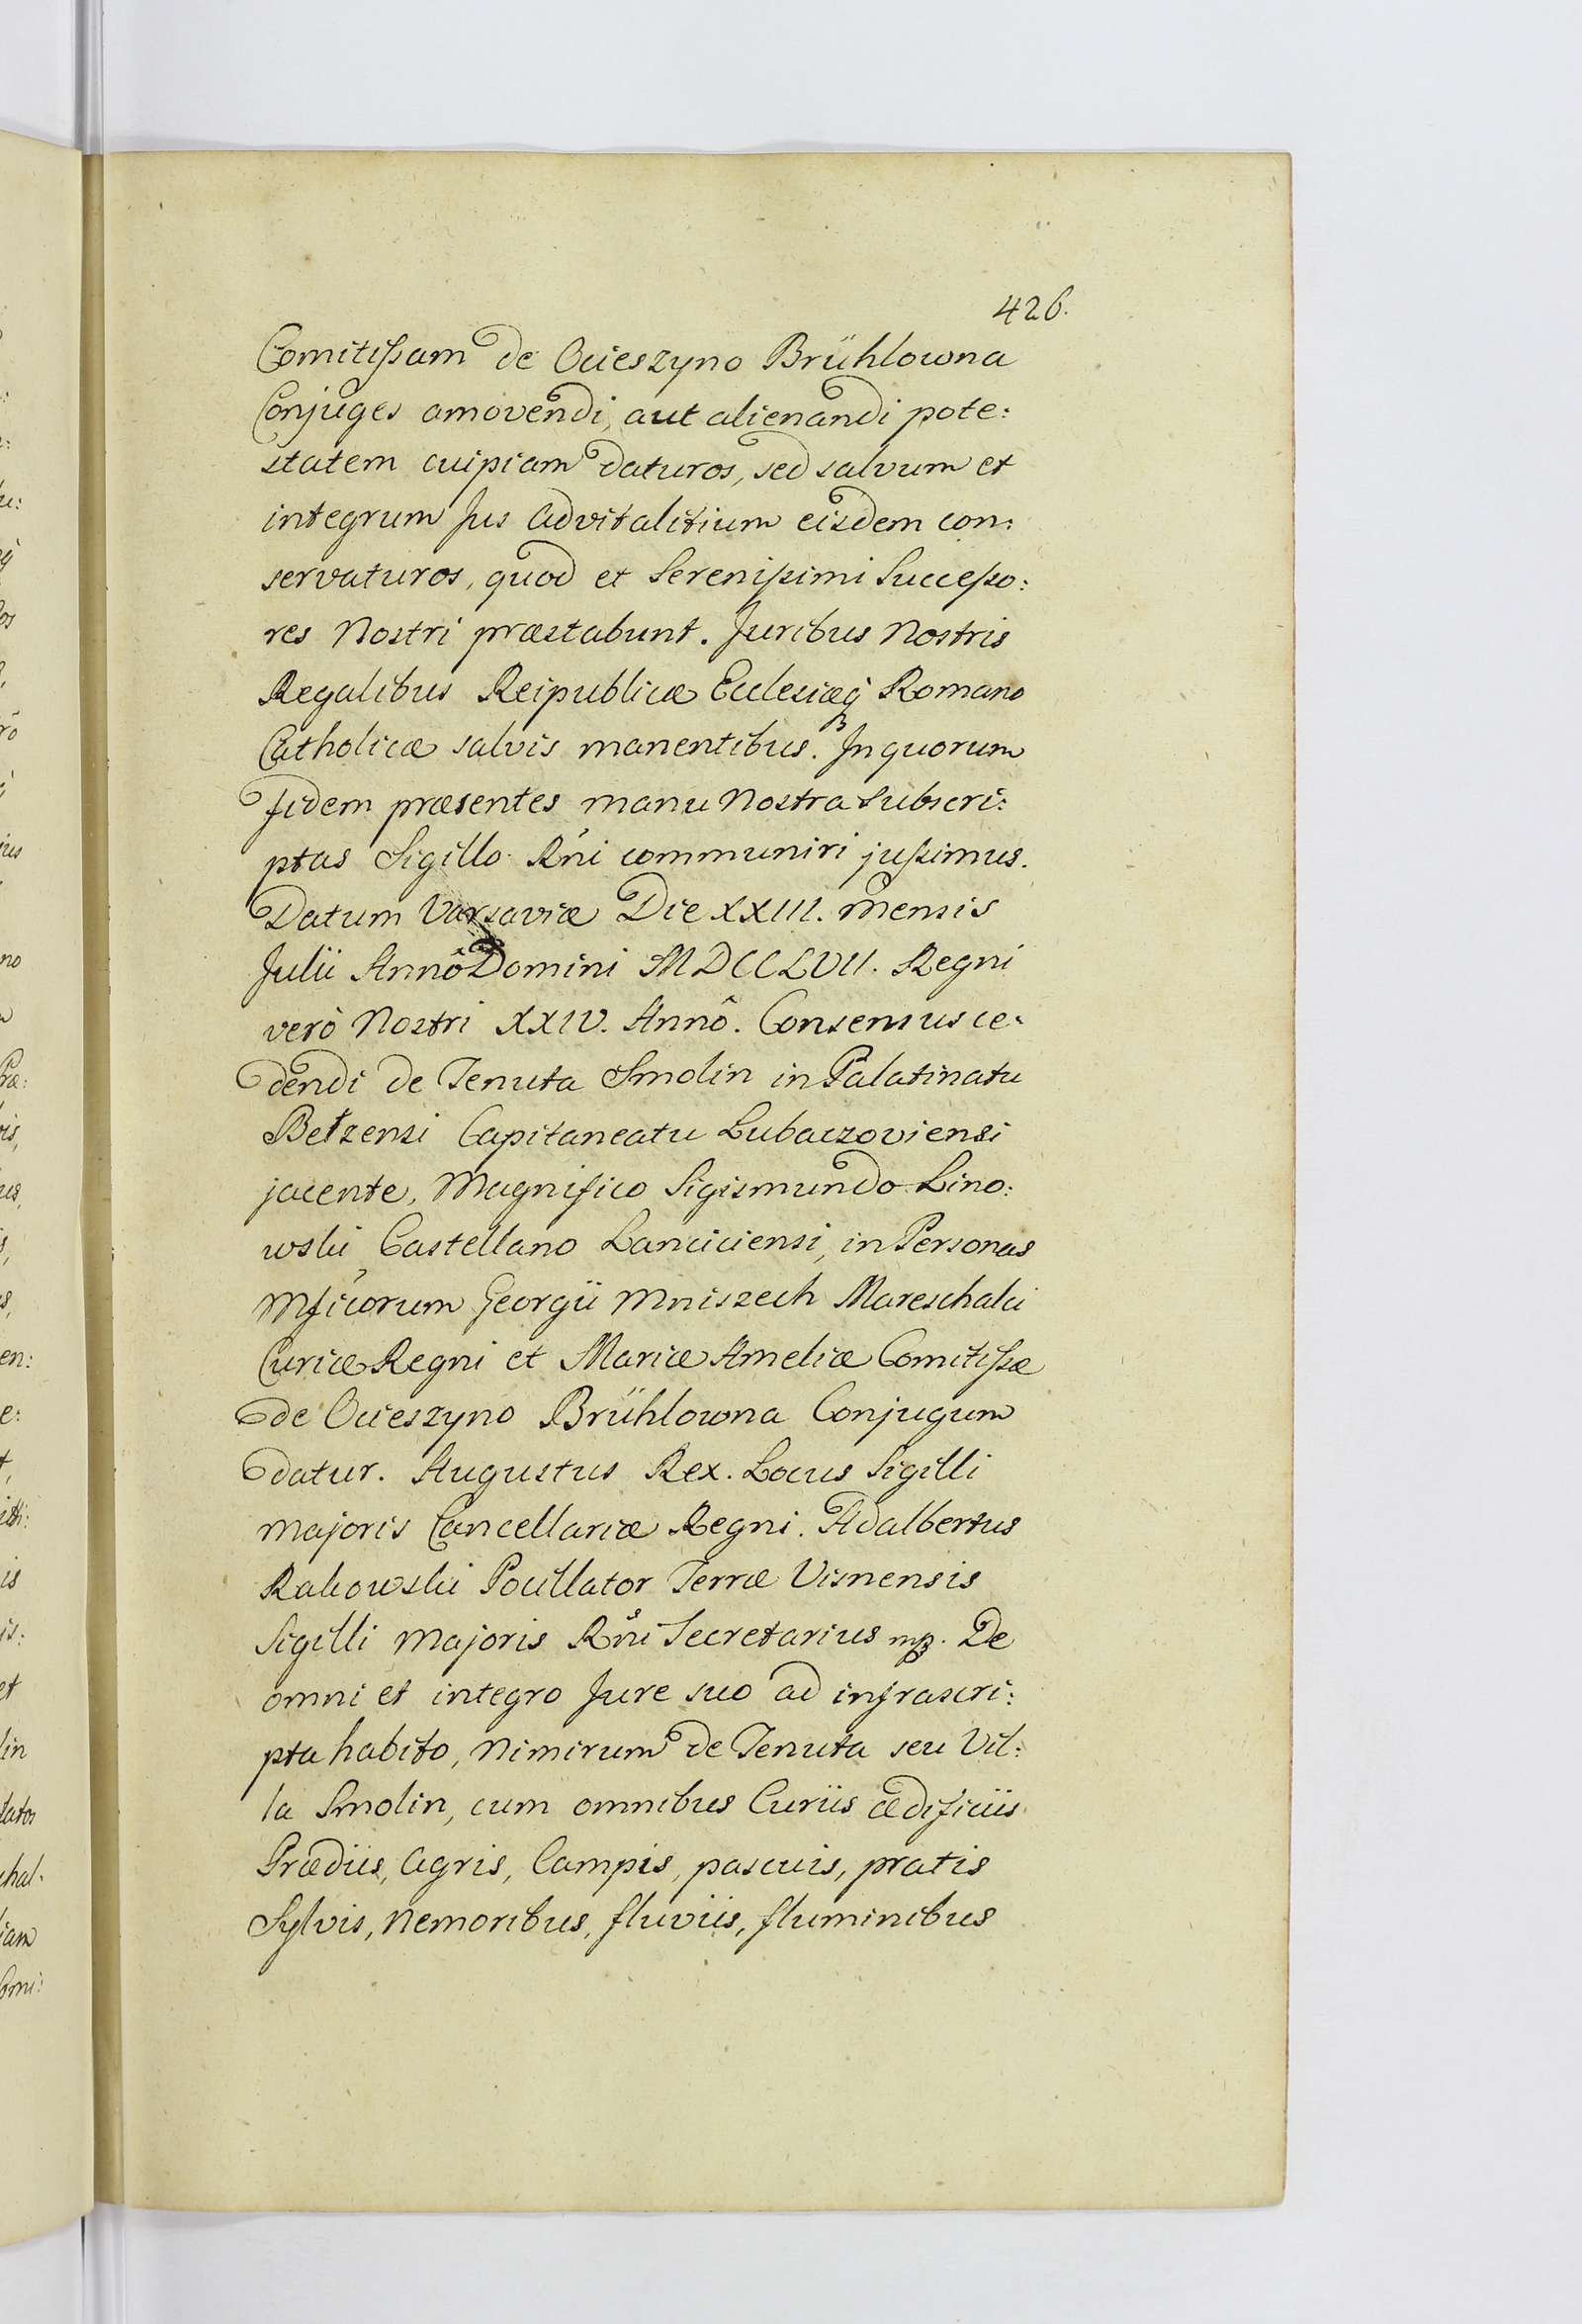 426.
Comitissam de Ocieszyno Brühlowna
Conjuges amovendi, aut alienandi pote:
statem cuipiam daturos, sed salvum et
integrum Jus Advitalitium eisdem con:
servaturos, quod et Serenissimi Successo:
res Nostri præstabunt. Juribus Nostris
Regalibus Reipublicæ Ecclesiæq3 Romano
Catholicæ salvis manentibus. In quorum
fidem præsentes manu Nostra Subscri:
ptas Sigillo Rńi communiri jussimus.
Datum Varsaviæ Die XXIII. mensis
Julii Annô Domini MDCCLVII. Regni
verò Nostri XXIV. Annô. Consensus ce:
dendi de Tenuta Smolin in Palatinatu
Bełzensi Capitaneatu Lubaczoviensi
jacente, Magnifico Sigismundo Lino:
wski Castellano Lanciciensi, in Personas
Mficorum Georgii Mniszech Mareschalci
Curiæ Regni et Mariæ Ameliæ Comitissæ
de Ocieszyno Brühlowna Conjugum
datur. Augustus Rex. Locus Sigilli
Majoris Cancellariæ Regni. Adalbertus
Rakowski Pocillator Terræ Visnensis
Sigilli Majoris Rńi Secretarius mp. De
omni et integro Jure suo ad infrascri:
pta habito, nimirum de Tenuta seu Vil:
la Smolin, cum omnibus Curiis ædificiis
Prædiis, Agris, Campis, pascuis, pratis
Sylvis, Nemoribus, fluviis, fluminibus